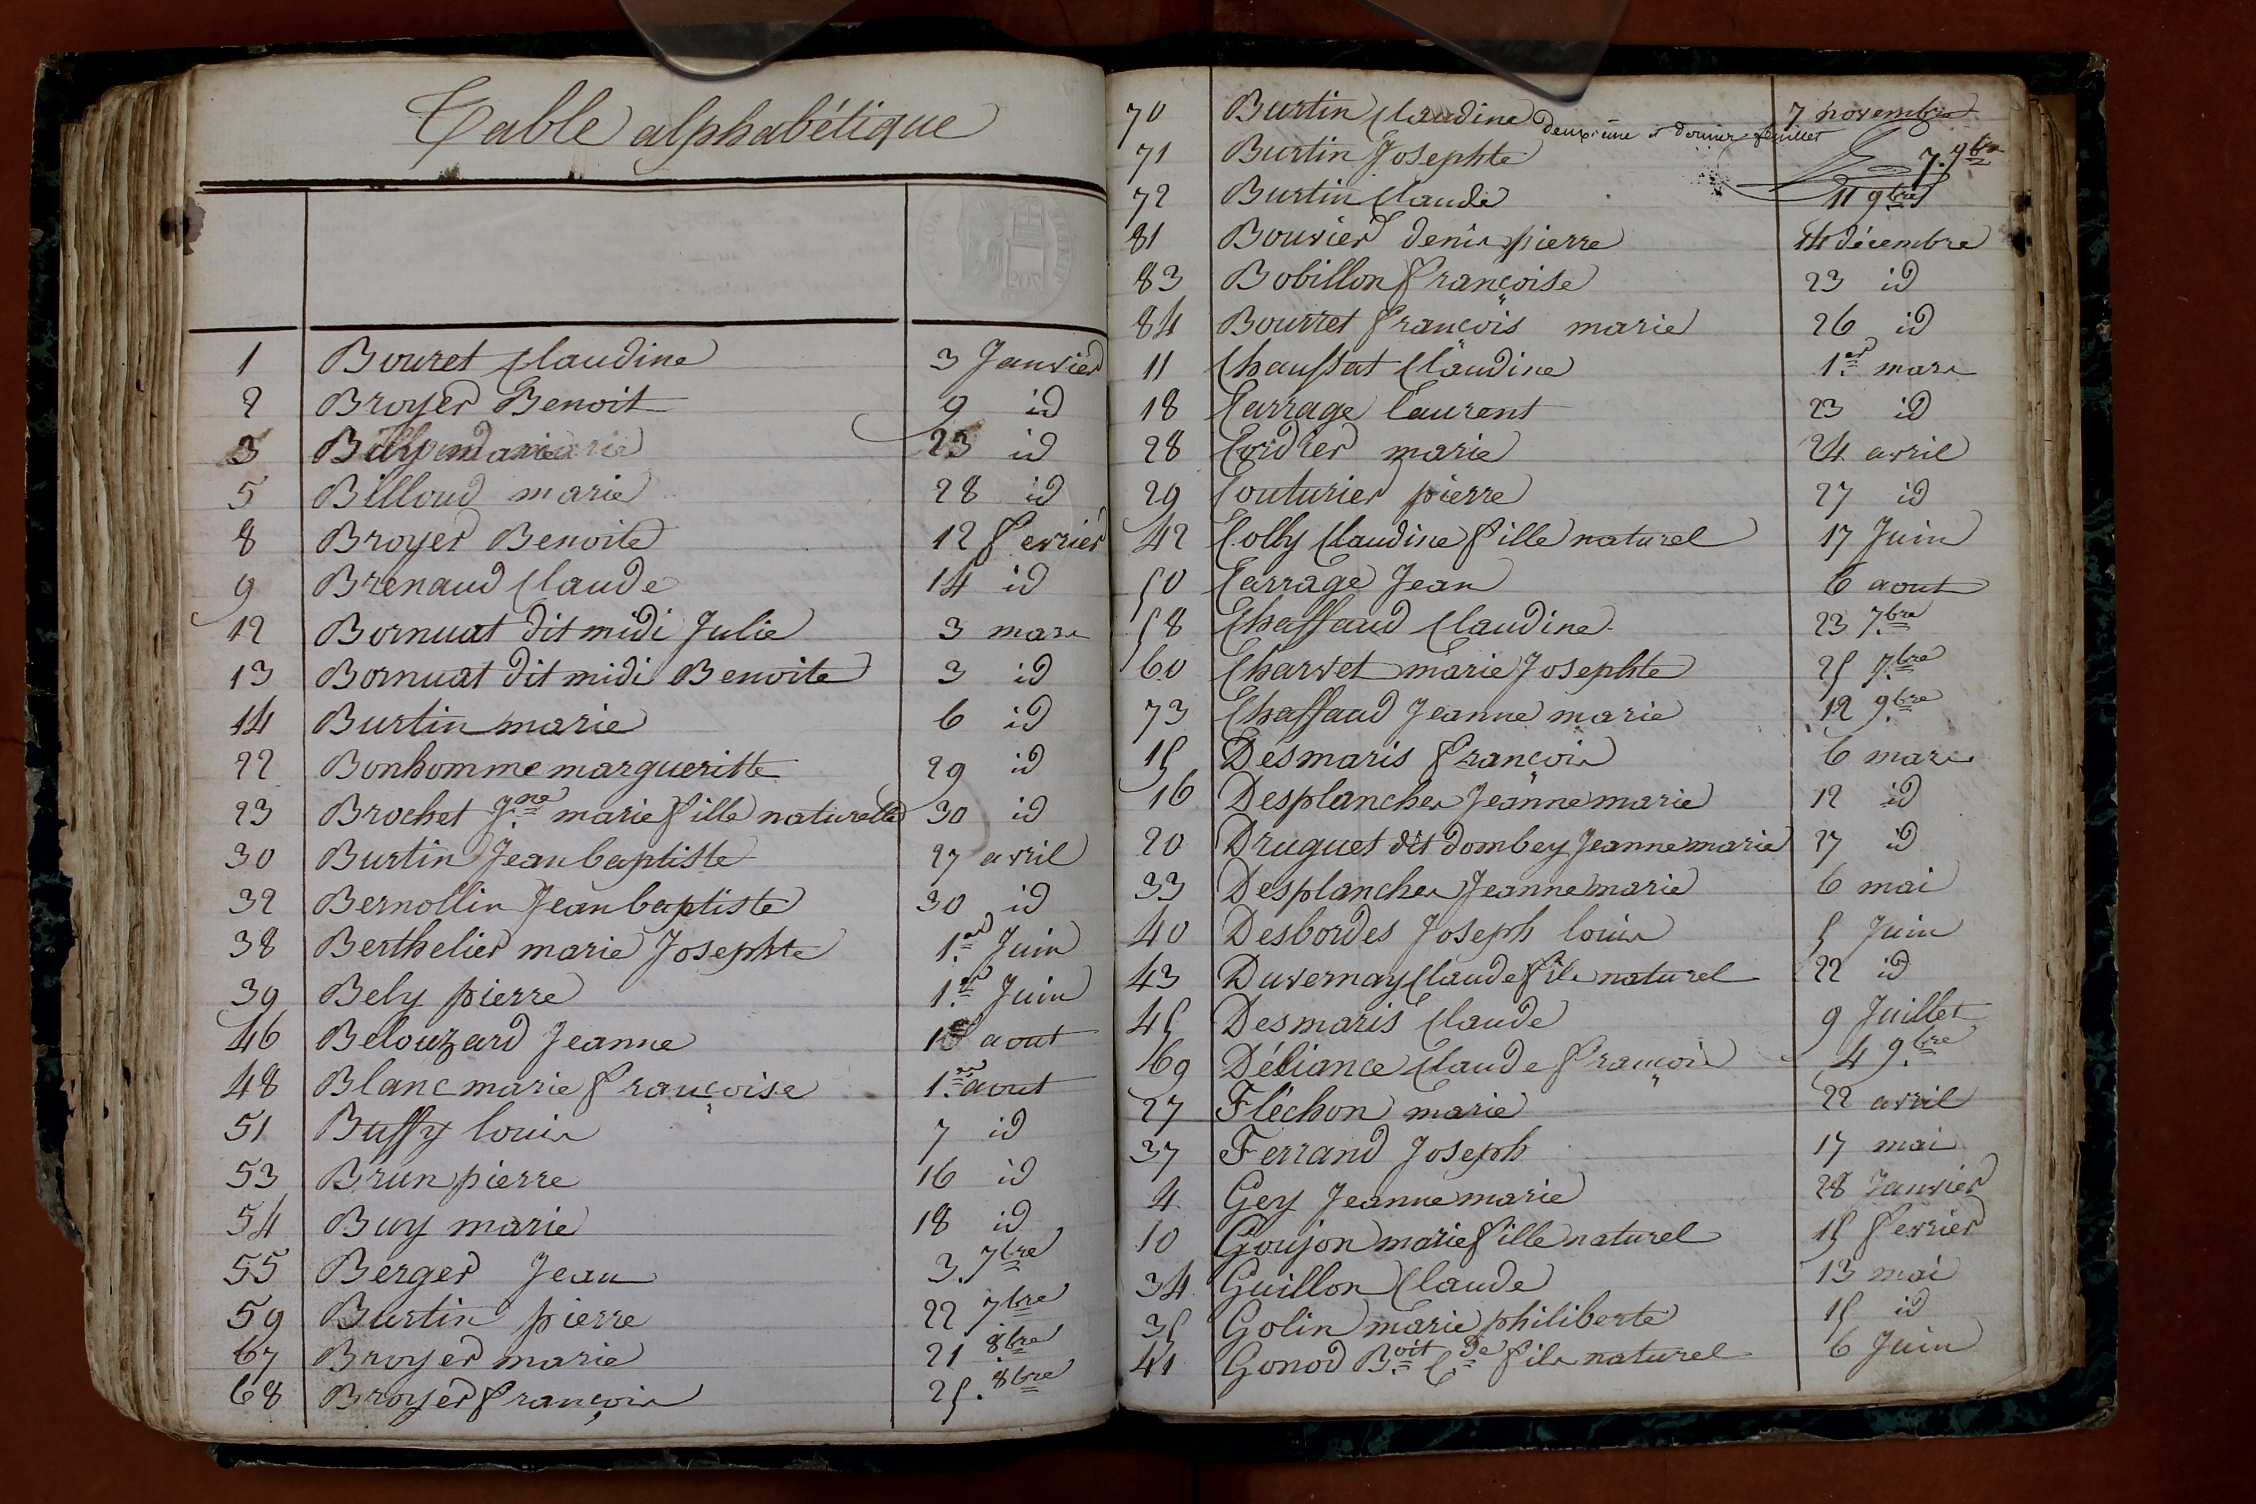 Table alphabétique
1 Bouret Claudine 3 Janvier
2 Broyer Benoit 9 id
3 marie 23 id
5 Billoud marie 28 id
8 Broyer Benoite 12 fevrier
9 Brenaud Claude 14 id
12 Bornuat dit midi Julie 3 mars
13 Bornuat dit midi Benoite 3 id
14 Burtin marie 6 id
22 Bonhomme margueritte 29 id
23 Brochet Jne marie fille naturelle 30 id
30 Burtin Jean baptiste 27 avril
32 Bernollin Jean baptiste 30 id
38 Berthelier marie Josephte 1er Juin
39 Bely pierre 1er Juin
46 Belouzard Jeanne aout
48 Blanc marie françoise 1er aout
51 Buffy louis 7 id
53 Brun pierre 16 id
54 Buy marie 18 id
55 Berger Jean 3. 7bre
59 Burtin pierre 22 7bre
67 Broyer marie 21 8bre
68 Broyer françois 25. 8bre
70 Burtin Claudine 7 novembre
deuxième et dernier feuillet
71 Burtin Josephte 7. 9bre
72 Burtin Claude 11 9bre
81 Bouvier denis pierre 14 décembre
83 Bobillon françoise 23 id
84 Bourret françois marie 26 id
11 Chaussat Claudine 1er mars
18 Carrage Laurent 23 id
28 Cordier marie 24 avril
29 Couturier pierre 27 id
42 Colly Claudine fille naturel 17 Juin
50 Carrage Jean 6 aout
58 Chaffaud Claudine 23 7bre
60 Charvet marie Josephte 25 7bre
73 Chaffaud Jeanne marie 12 9bre
15 Desmaris françois 6 mars
16 Desplanches Jeanne marie 12 id
20 Druguet dit dombey Jeanne marie 27 id
33 Desplanches Jeanne marie 6 mai
40 Desbordes Joseph louis 5 Juin
43 Duvernay Claude fils naturel 22 id
45 Desmaris Claude 9 Juillet
69 Déliance Claude françois 4 9.bre
27 Fléchon marie 22 avril
37 Ferrand Joseph 17 mai
4 Gey Jeanne marie 28 Janvier
10 Goujon marie fille naturel 15 fevrier
34 Guillon Claude 13 mai
35 Golin marie philiberte 15 id
41 Gonod Boit Cde fils naturel 6 Juin